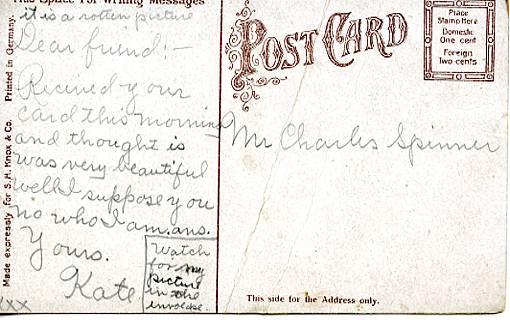 This Space For Writing Messages
it is a rotten picture
Dear friend:-
Recieved your
card this morning
and thought is
was very beautiful
well I suppose you
no who I am. ans.
Yours.
Kate
xx
Watch
for my
picture
in the
Made expressly for S. H. Knox & Co. Printed in Germany.
POST CARD
Place
Stamp Here
Domestic
One cent
Foreign
Two cents
Mr Charles Spinner
This side for the Address only.